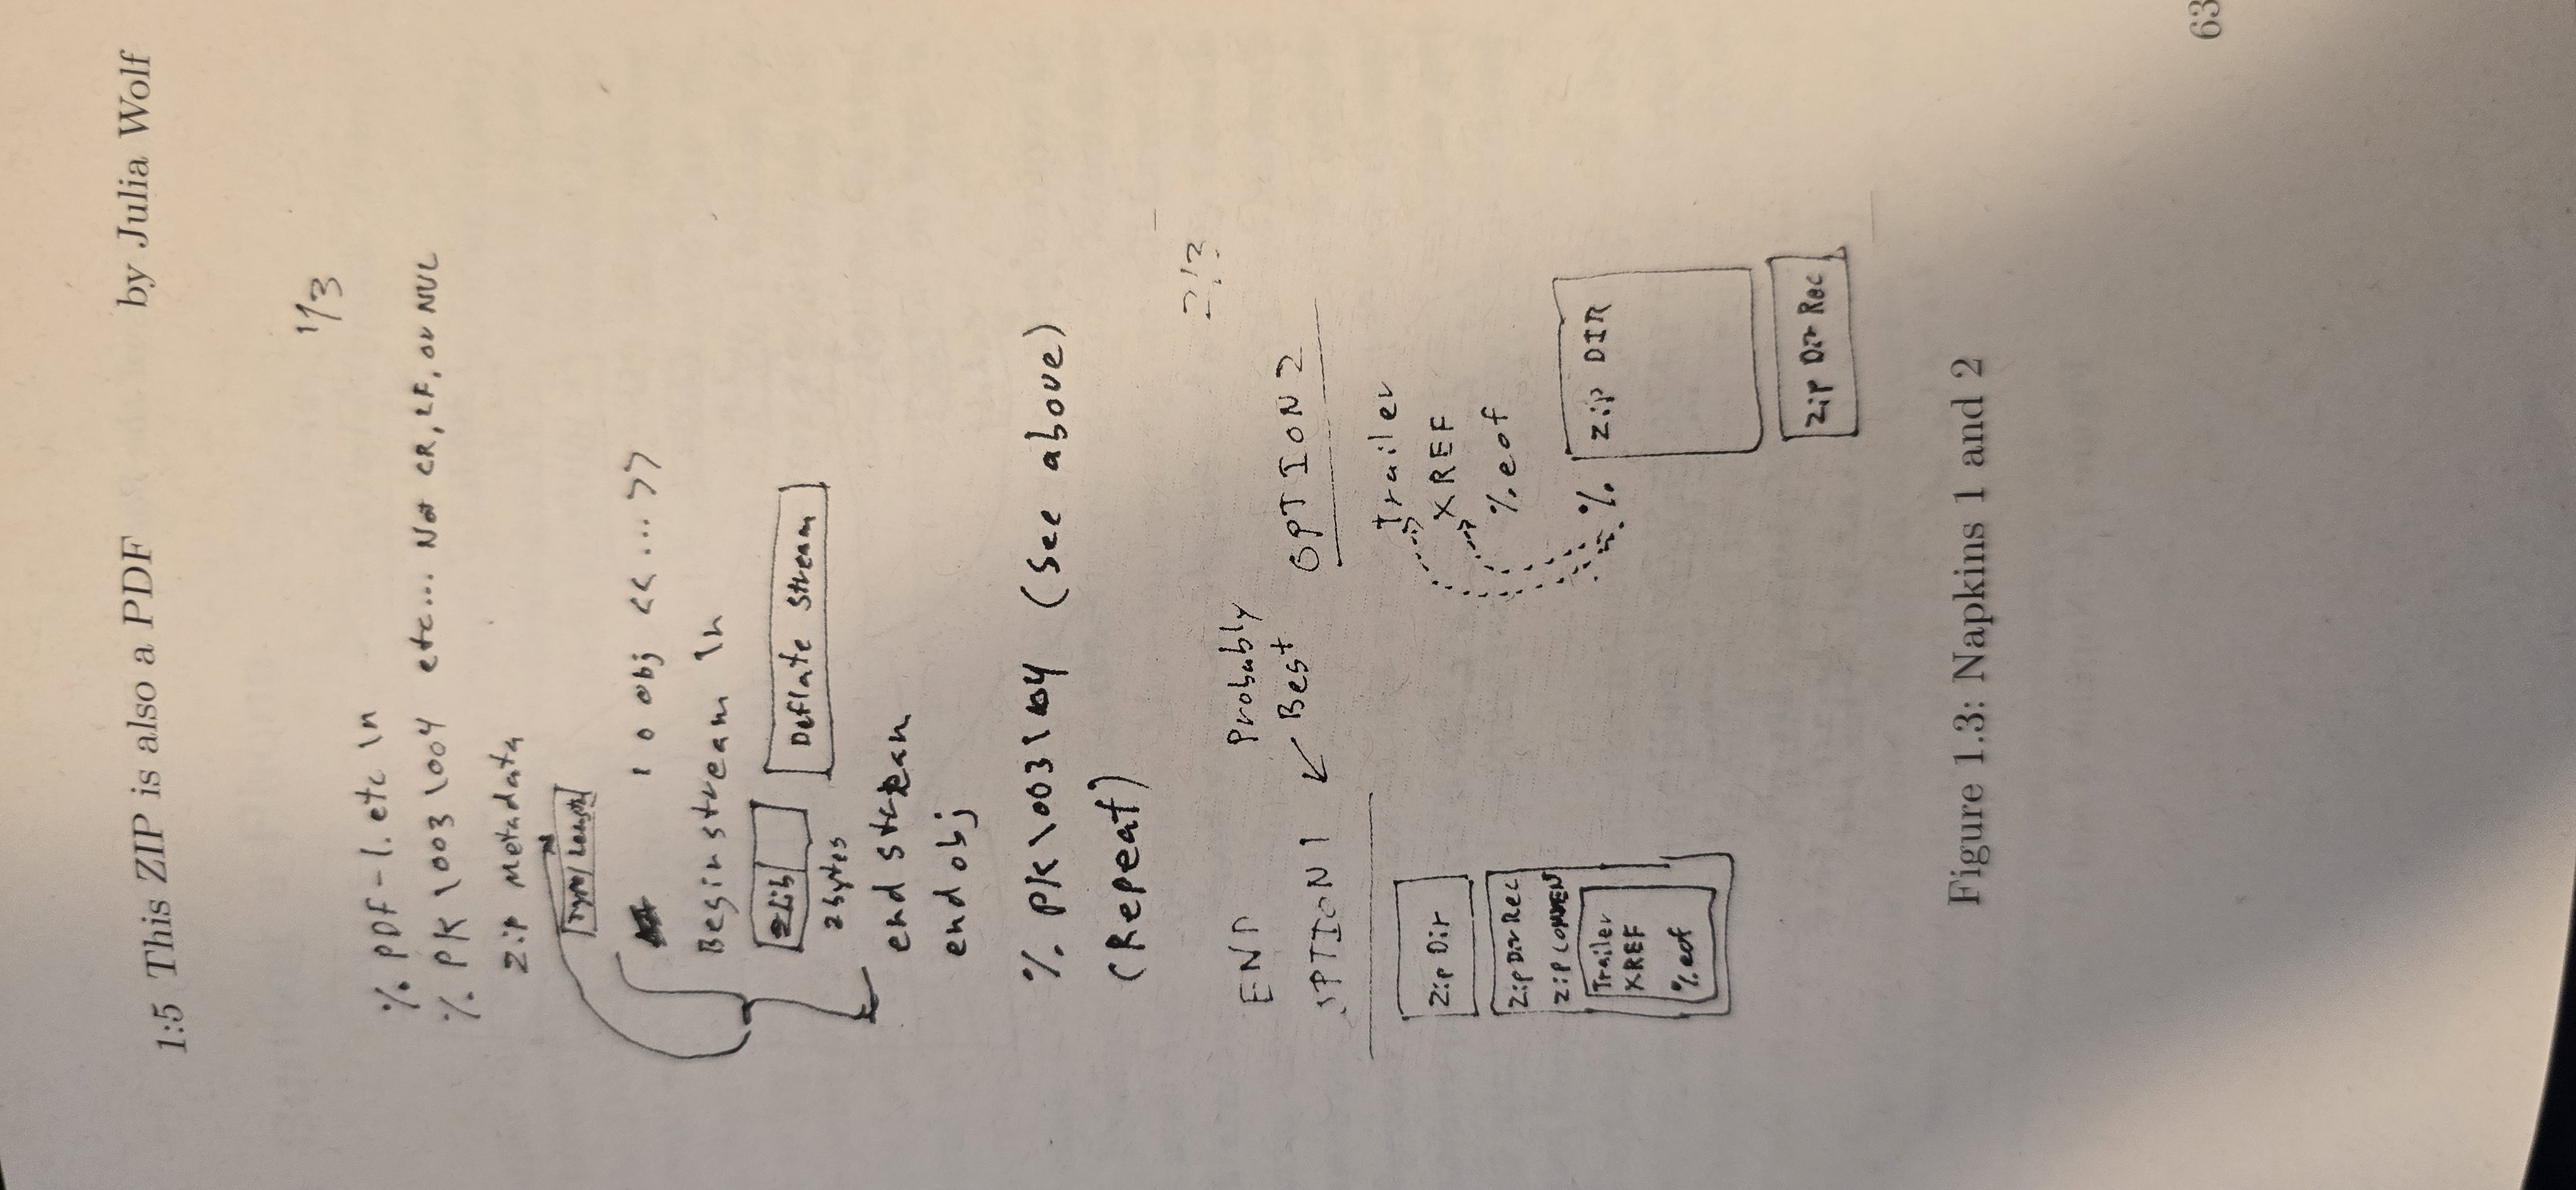 1:5 This ZIP is also a PDF by Julia Wolf
1/3
% PDF-1.etc \n
% PK\003\004 etc... Not CR, LF, or NUL
zip metadata
1 0 obj << ... >>
Begin stream \n
zlib Deflate Stream
2 bytes
end stream
end obj
% PK\003\004 (See above)
(Repeat)
2/3
END Probably
OPTION 1 ← Best OPTION 2
Zip Dir
Zip Dir Rec
Zip COMMENT
Trailer
XREF
%eof
Trailer
XREF
%eof
% Zip DIR
Zip Dir Rec
Figure 1.3: Napkins 1 and 2
63